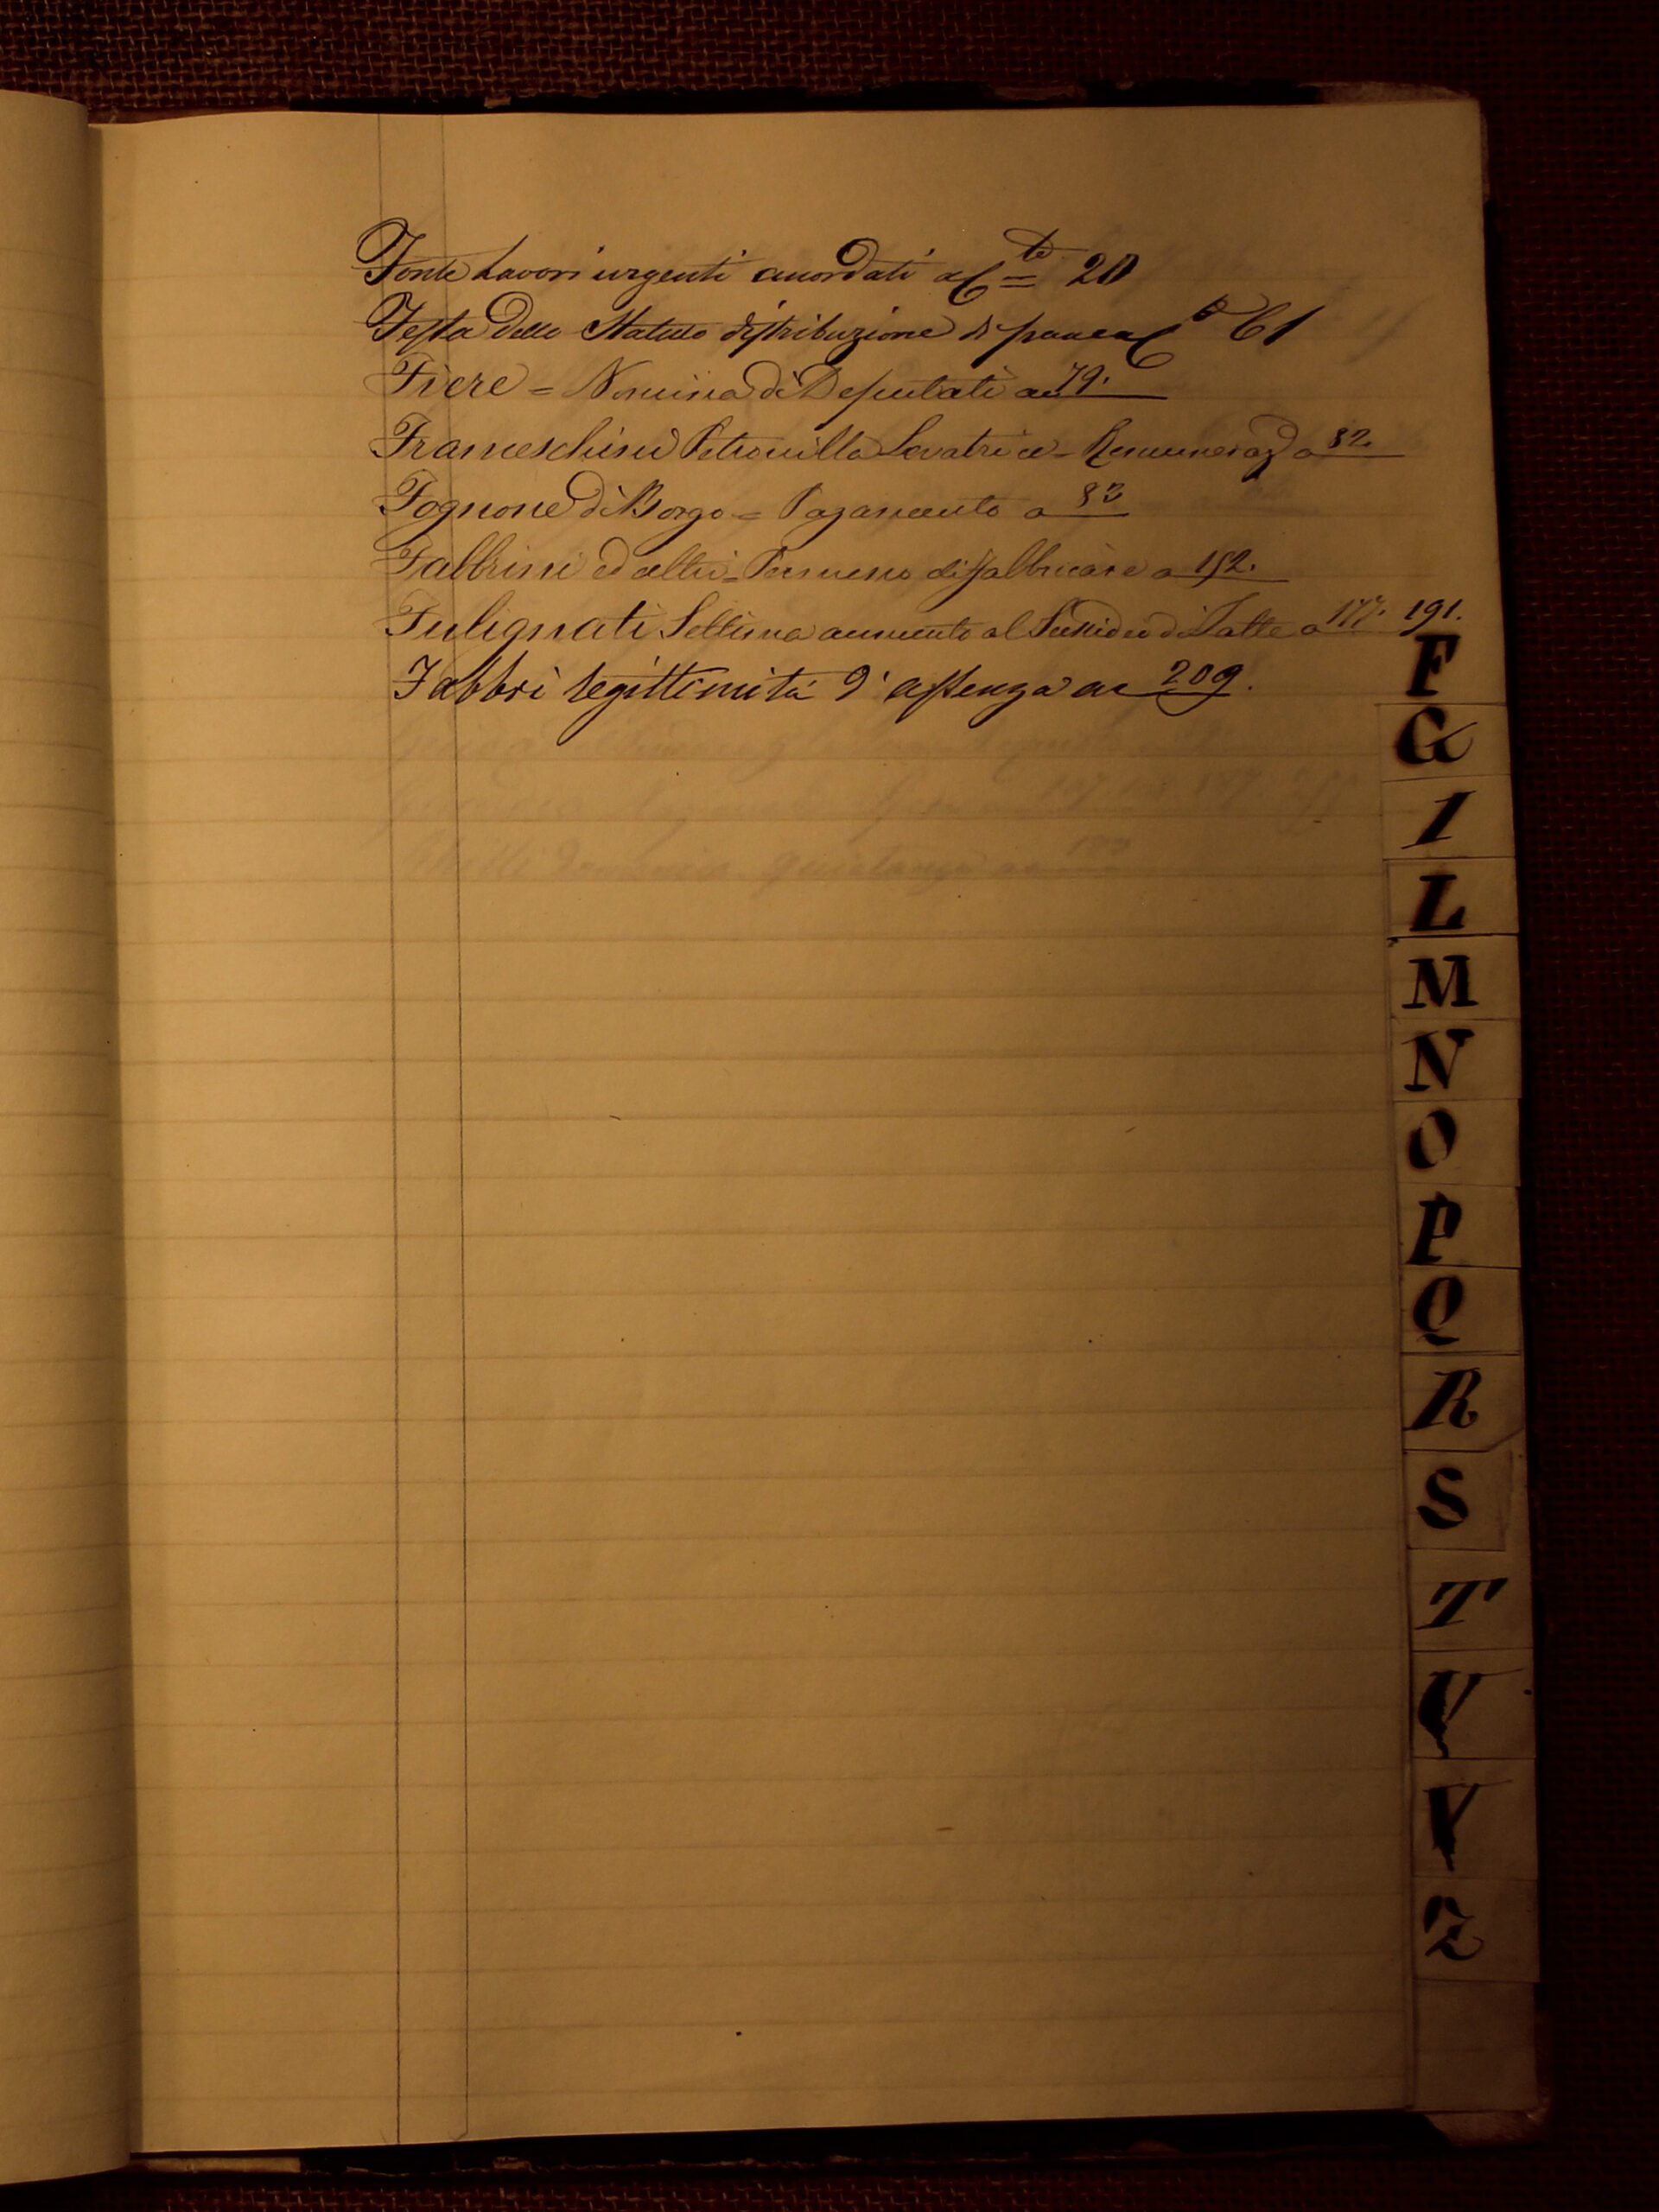 Fonte Lavori urgenti accordati a C.te 20
Festa dello Statuto distribuzione di pane a C 61
Fiere = Nomina di Deputati a 79.
Franceschini Petronilla Levatrice = Remuneraz a 82
Fognone di Borgo = Pagamento a 83
Fabbrini ed altri = Permesso di fabbricare a 152.
Fulignati Settima aumento al Sussidio di Latte a 177. 191.
Fabbri legittimità d'assenza a 209.
F
G
I
L
M
N
O
P
Q
R
S
T
V
Z